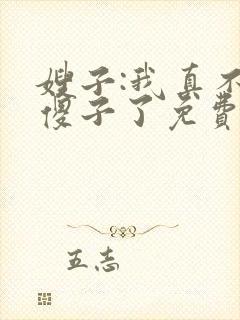 嫂子:我真不
傻子了免费
五志